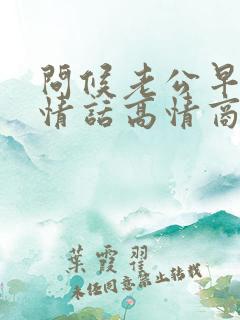 問候老公早
情話高情商
葉霞翟
未经同意禁止转载